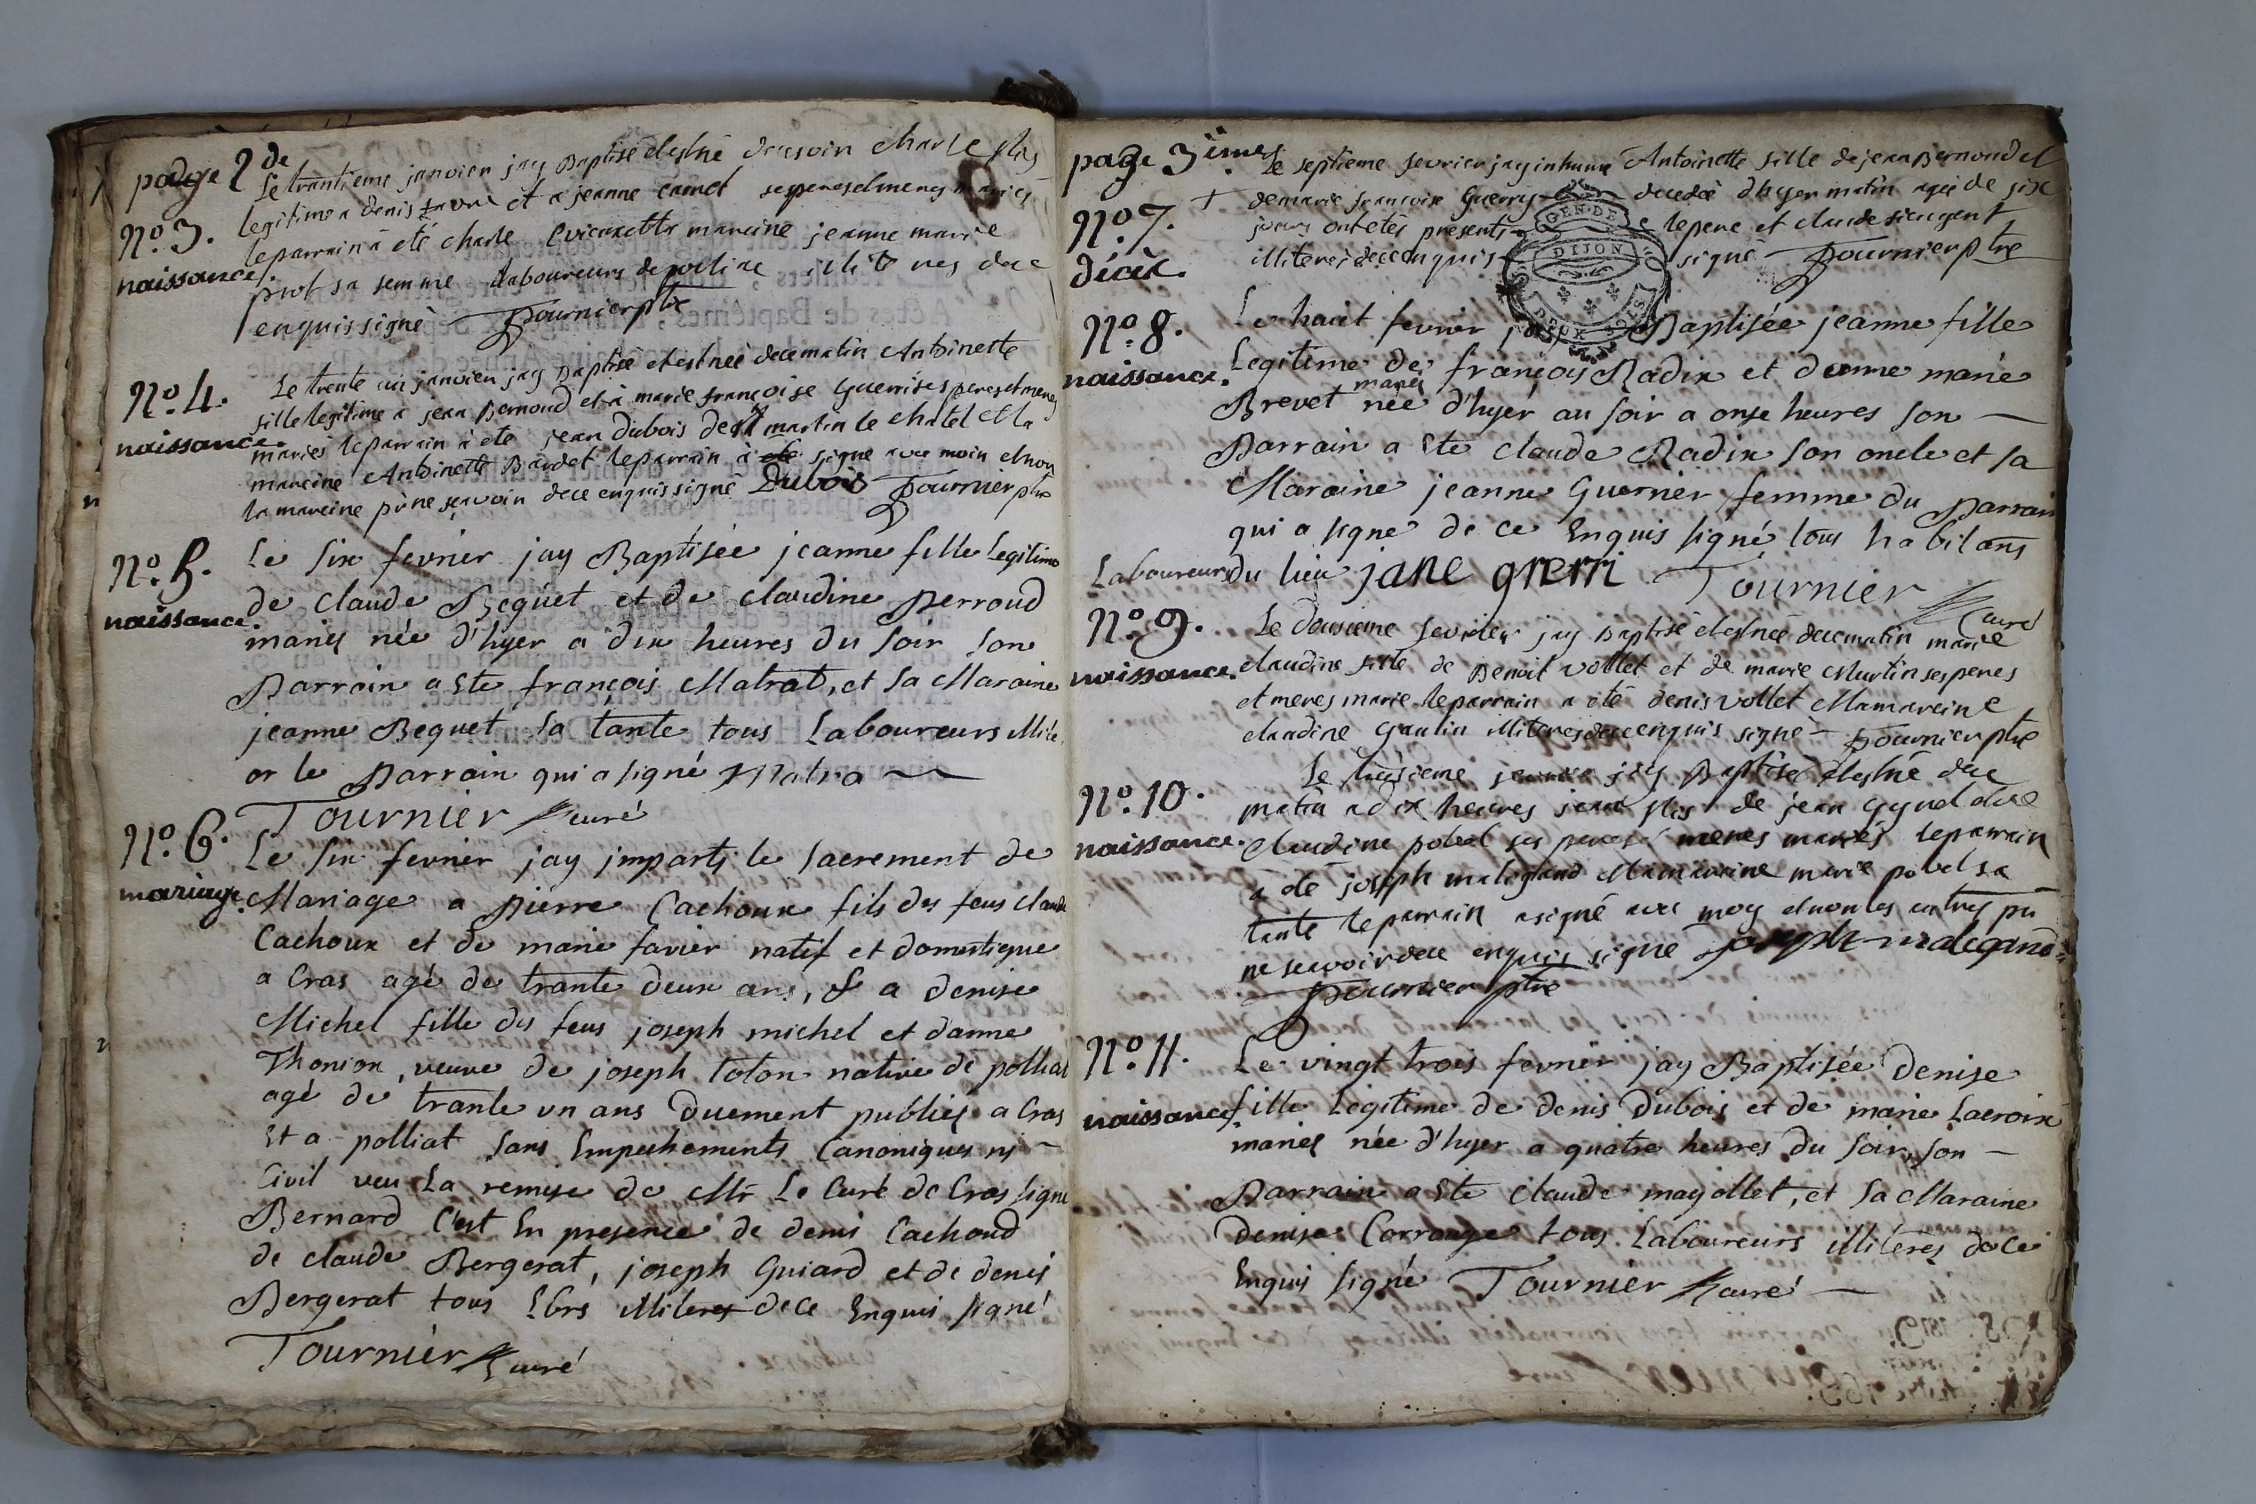 padge 2de
Le trantieme janvier jay Baptisé et est né du soir charle fils
No. 3.
naissance.
legitime a denis favre et a jeanne carnet ses peres et meres mariés
le parrain à été charle marcine jeanne marie
piot sa femme laboureurs de illiteres de ce
enquis signé Tournier ptre
No. 4.
naissance.
Le trente un janvier jay Baptisé et est neé de ce matin Antoinette
fille legitime a jean Bernoud et à marie françoise Guerri ses peres et meres
mariés le parrain à eté jean Dubois de st martin le chatel et la
mareine Antoinette Baudet le parrain à eté signé avec moin et non
la mareine pu ne scavoir de ce enquis signé Dubois Tournier ptre
No. 5.
naissance.
Le six fevrier jay Baptisée jeanne fille legitime
de claude Bequet et de claudine perroud
mariés née d'hyer a dix heures du soir son
Parrain a Ete françois Matrat, et sa Maraine
jeanne Bequet sa tante tous Laboureurs illité.
or le Parrain qui a signé Matra
Tournier curé
No. 6.
mariage.
Le six fevrier jay imparti le sacrement de
Mariage a pierre Cachoux fils des feus claude
Cachoux et de marie favier natif et domestique
a Cras agé de trante deux ans, & a denise
Michel fille des feus joseph michel et danne
Thonion, veuve de joseph toton native de polliat
agé de trante un ans Duement publiés a Cras
Et a polliat sans Empechements Canoniques ni
Civil veu La remise de Mr Le Curé de Cras signé
Bernard C'est En presence de denis Cachoud
de claude Bergerat, joseph Guiard et de denis
Bergerat tous Lbrs illiteres de ce Enquis signé
Tournier curé
page 3iemes
Le septieme fevrier jay inhumé Antoinette fille de jean Bernoud et
No. 7.
décèx.
de marie françoise Guerry decedeé d'hyer matin agée de six
jours ont etés presents le pere et claude
illiteres de ce enquis signé Tournier ptre
GEN. DE
DIJON
DEUX SOLS
No. 8.
naissance.
Le huit fevrier jay Baptisée jeanne fille
Legitime de françois Radix et danne marie
Brevet mariés née d'hyer au soir a onze heures son
Parrain a Ete claude Radix son oncle et sa
Maraine jeanne Guerrier femme du parrain
qui a signé de ce Enquis signé tous habitans
Laboureurs du lieu jane grerri Tournier
curé
No. 9.
naissance.
Le dousieme fevrier jay Baptisé et est neé de ce matin marie
claudine fille de Benoit vollet et de marie Martin ses peres
et meres marie le parrain a été denis vollet et la mareine
claudine Gautin illiteres de ce enquis signé Tournier ptre
No. 10.
naissance.
Le jay Baptisé et est né de ce
matin a dix heures jean fils de jean et de
Claudine pobel ses peres meres mariés le parrain
à été joseph malegrand et la mareine marie pobel sa
tante le parrain a signé avec moy et non les autres pu
ne scavoir de ce enquis signé joseph malegrand
Tournier ptre
No. 11.
naissance.
Le vingt trois fevrier jay Baptisée Denise
fille Legitime de denis Dubois et de marie Lacroix
mariés née d'hyer a quatre heures du soir, son
Parrain a Ete claude mayollet, et sa Maraine
denise Corrange tous Laboureurs illiteres de ce
Enquis signé Tournier curé